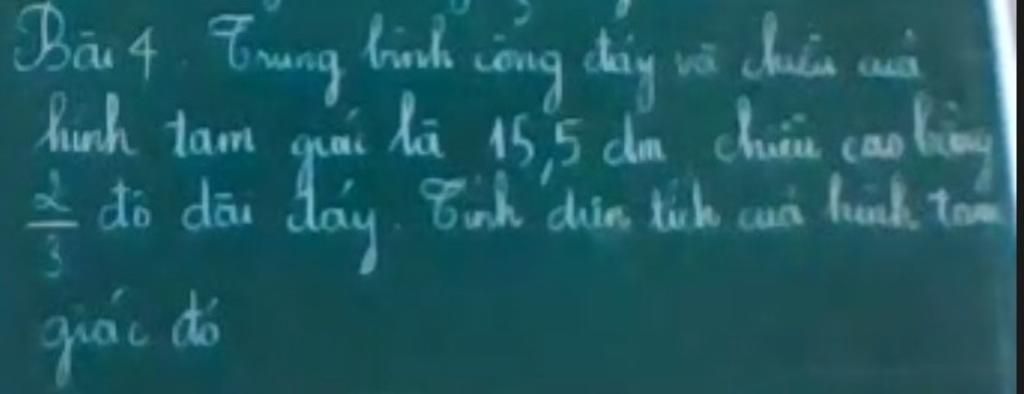 Bài 4. Trung bình cộng đáy và chiều của
hình tam giác là 15,5 dm chiều cao bằng
2/3 độ dài đáy. Tính diện tích của hình tam
giác đó